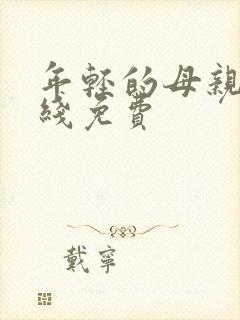 年轻的母親
綫免費
戴寧